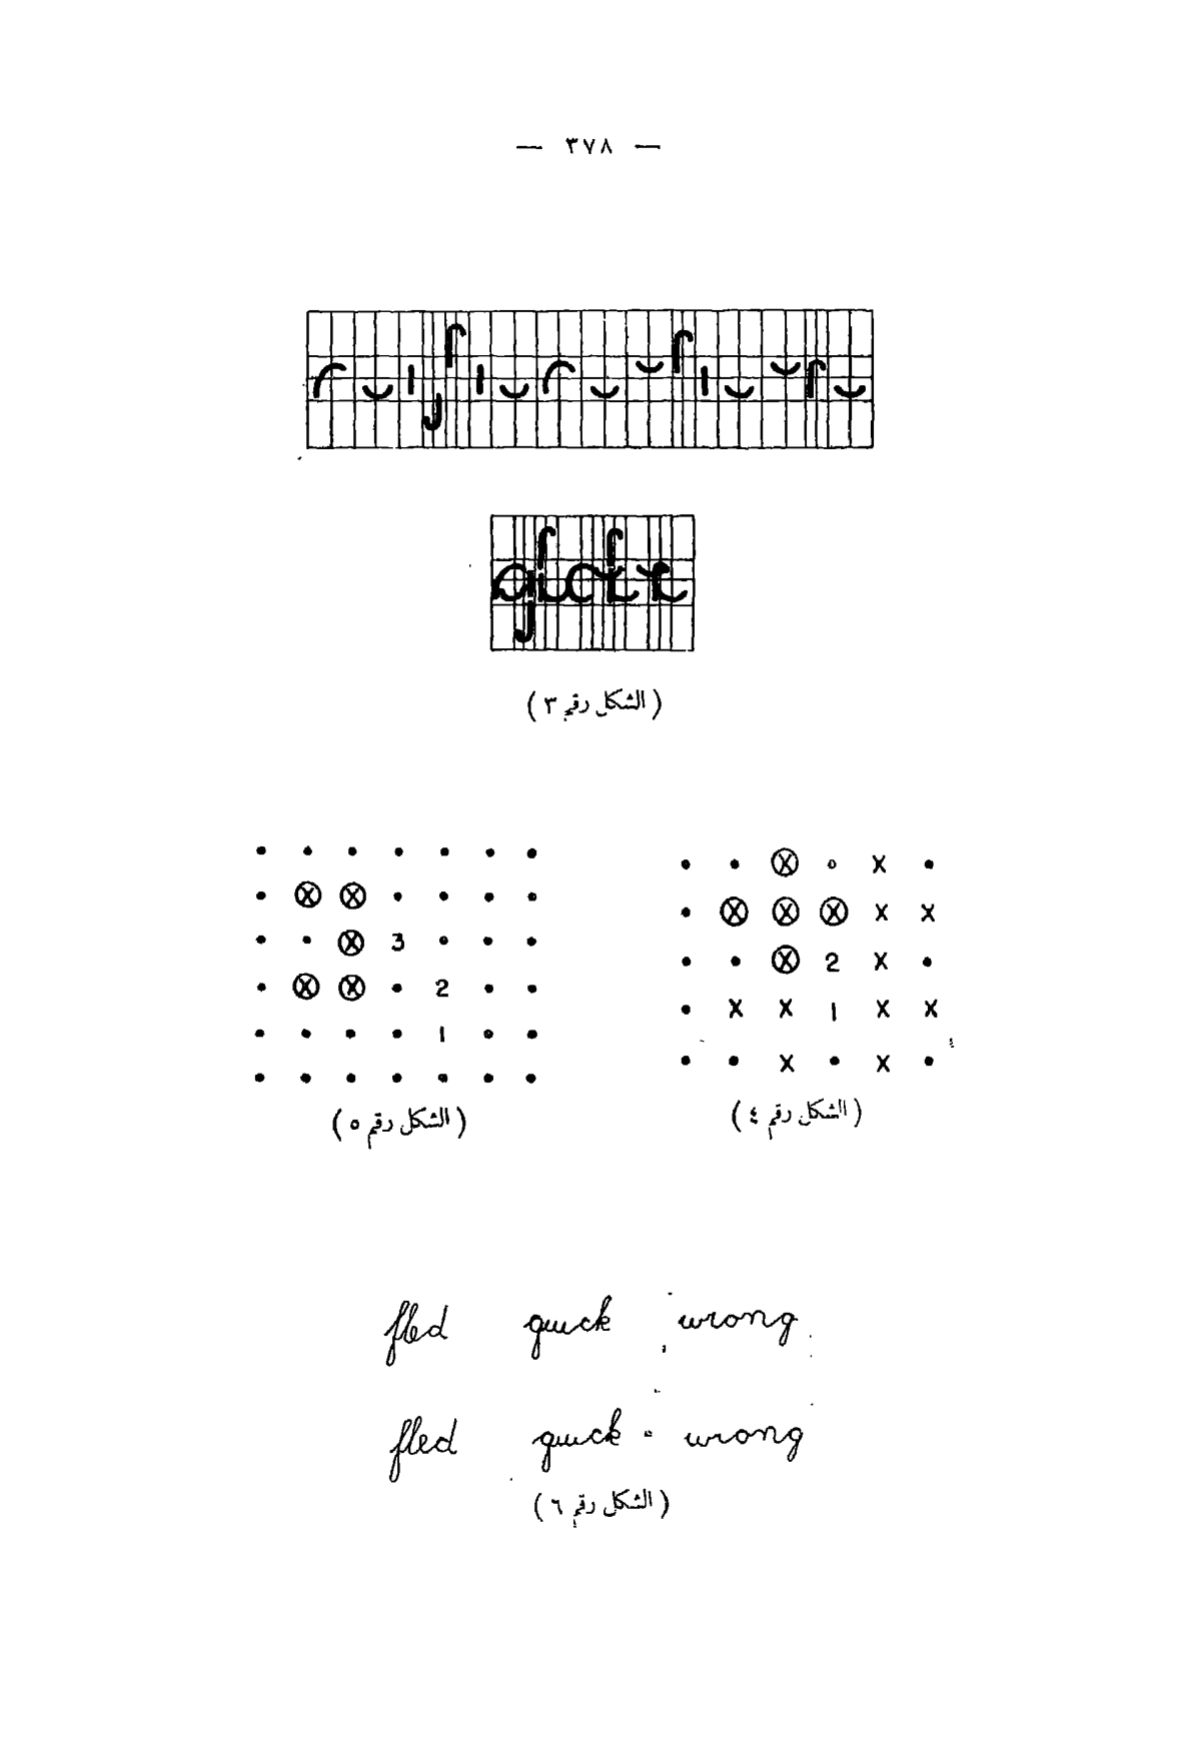 — ٣٧٨ —
( الشكل رقم ٣ )
3
2
1
( الشكل رقم ٥ )
2
1
( الشكل رقم ٤ )
fled quick wrong
fled quick wrong
( الشكل رقم ٦ )